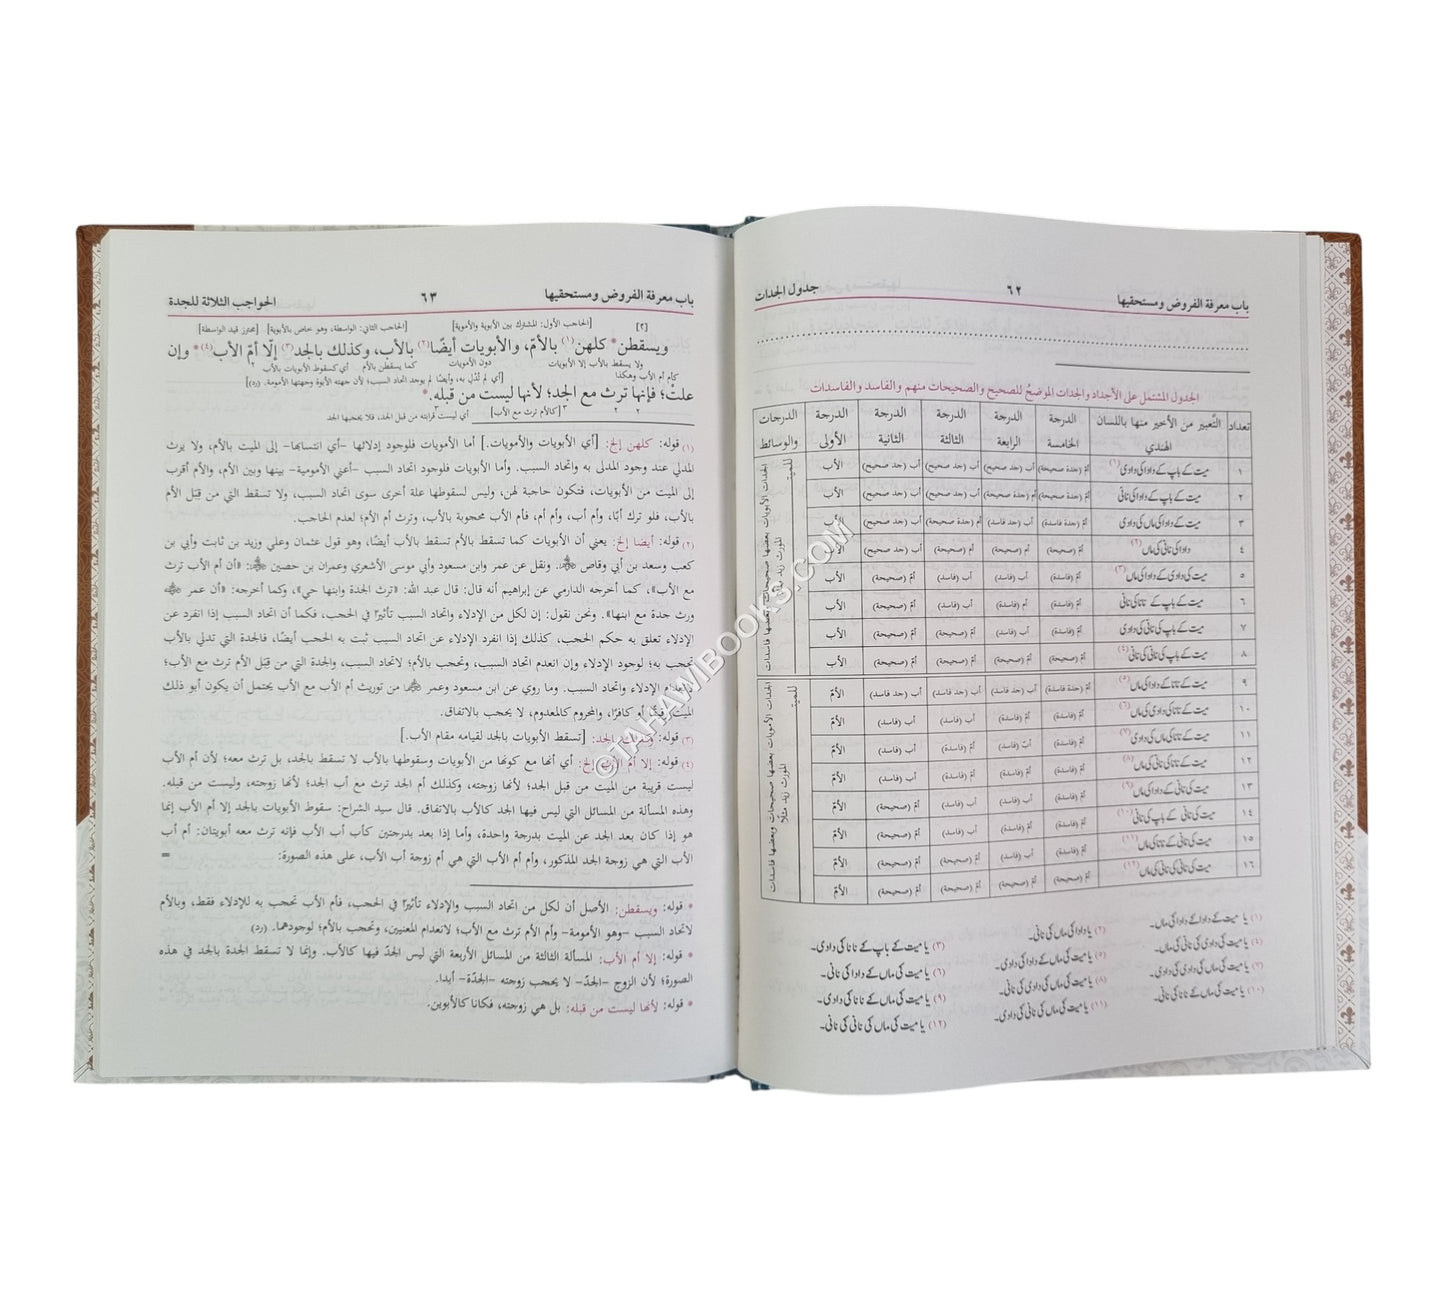 باب معرفة الفروض ومستحقيها
٦٢
جدول الجدات
الجدول المشتمل على الأجداد والجدات الموضحُ للصحيح والصحيحات منهم والفاسد والفاسدات
تعداد التَّعبير من الأخير منها باللسان الهندي الدرجة الخامسة الدرجة الرابعة الدرجة الثالثة الدرجة الثانية الدرجة الأولى الدرجات والوسائط
١ میت کے باپ کے دادا کی دادی(١) أمّ (جدة صحيحة) أب (جد صحيح) أب (جد صحيح) أب (جد صحيح) الأب
٢ میت کے باپ کے دادا کی نانی أمّ (جدة صحيحة) أم (جدة صحيحة) أب (جد صحيح) أب (جد صحيح) الأب
٣ میت کے دادا کی ماں کی دادی أمّ (جدة فاسدة) أب (جد فاسد) أم (جدة صحيحة) أب (جد صحيح) الأب
٤ دادا کی نانی کی ماں(٢) أمّ (صحيحة) أم (صحيحة) أم (صحيحة) أب (جد صحيح) الأب
٥ میت کی دادی کے دادا کی ماں(٣) أمّ (فاسدة) أب (فاسد) أب (فاسد) أمّ (صحيحة) الأب
٦ میت کے باپ کے نانا کی نانی أمّ (فاسدة) أم (فاسدة) أب (فاسد) أمّ (صحيحة) الأب
٧ میت کے باپ کی نانی کی دادی أمّ (فاسدة) أب (فاسد) أمّ (صحيحة) أمّ (صحيحة) الأب
٨ میت کے باپ کی نانی کی نانی(٤) أمّ (صحيحة) أمّ (صحيحة) أمّ (صحيحة) أمّ (صحيحة) الأب
٩ میت کے نانا کے دادا کی ماں(٥) أمّ (جدة فاسدة) أب (جد فاسد) أب (جد فاسد) أب (جد فاسد) الأمّ
١٠ میت کے نانا کی دادی کی ماں(٦) أمّ (فاسدة) أمّ (فاسدة) أب (فاسد) أب (فاسد) الأمّ
١١ میت کے نانا کی ماں کی دادی(٧) أمّ (فاسدة) أبّ (فاسد) أمّ (فاسدة) أب (فاسد) الأمّ
١٢ میت کے نانا کی نانی کی ماں(٨) أمّ (فاسدة) أمّ (فاسدة) أمّ (فاسدة) أب (فاسد) الأمّ
١٣ میت کی نانی کے دادا کی ماں(٩) أمّ (فاسدة) أب (فاسد) أب (فاسد) أمّ (صحيحة) الأمّ
١٤ أمّ (فاسدة) أمّ (فاسدة) أب (فاسد) أمّ (صحيحة) الأمّ
١٥ أمّ (فاسدة) أب (فاسد) أمّ (صحيحة) أمّ (صحيحة) الأمّ
١٦ میت کی نانی کی نانی کی ماں(١٢) أمّ (صحيحة) أمّ (صحيحة) أمّ (صحيحة) أمّ (صحيحة) الأمّ
(١) یا میت کے دادا کے دادا کی ماں۔ (٢) یا دادا کی ماں کی نانی۔ (٣) یا میت کے باپ کے نانا کی دادی۔
(٤) یا میت کی دادی کی نانی کی ماں۔ (٥) یا میت کی ماں کے دادا کی دادی۔ (٦) یا میت کی ماں کے دادا کی نانی۔
(٨) یا میت کی ماں کی دادی کی نانی۔ (٩) یا میت کی ماں کے نانا کی دادی۔
(١٠) یا میت کی ماں کے نانا کی نانی۔ (١١) یا میت کی ماں کی نانی کی دادی۔ (١٢) یا میت کی ماں کی نانی کی نانی۔
باب معرفة الفروض ومستحقيها
٦٣
الحواجب الثلاثة للجدة
[٢] [الحاجب الأول: المشترك بين الأبوية والأموية] [الحاجب الثاني: الواسطة، وهو خاص بالأبوية] [محترز قيد الواسطة]
ويسقطن* كلهن(١) بالأمّ، والأبويات أيضًا(٢) بالأب، وكذلك بالجد(٣) إلّا أمّ الأب(٤)* وإن
ولا يسقط بالأب إلا الأبويات دون الأمويات كما يسقطن بالأم أي كسقوط الأبويات بالأب
كأم أم الأب وهكذا [أي لم تُدْلِ به، وأيضًا لم يوجد اتحاد السبب؛ لأن جهته الأبوة وجهتها الأمومة. (رد)]
علتْ؛ فإنها ترث مع الجد؛ لأنها ليست من قبله.*
[كالأم ترث مع الأب] أي ليست قرابته من قبل الجد، فلا يحجبها الجد
(١) قوله: كلهن إلخ: [أي الأبويات والأمويات.] أما الأمويات فلوجود إدلائها -أي انتسابها- إلى الميت بالأم، ولا يرث
المدلي عند وجود المدلى به واتحاد السبب. وأما الأبويات فلوجود اتحاد السبب -أعني الأمومية- بينها وبين الأم، والأم أقرب
إلى الميت من الأبويات، فتكون حاجبة لهن، وليس لسقوطها علة أخرى سوى اتحاد السبب، ولا تسقط التي من قِبَل الأم
بالأب، فلو ترك أبًا، وأم أب، وأم أم، فأم الأب محجوبة بالأب، وترث أم الأم؛ لعدم الحاجب.
(٢) قوله: أيضا إلخ: يعني أن الأبويات كما تسقط بالأم تسقط بالأب أيضًا، وهو قول عثمان وعلي وزيد بن ثابت وأبي بن
كعب وسعد بن أبي وقاص ﷺ. ونقل عن عمر وابن مسعود وأبي موسى الأشعري وعمران بن حصين: «أن أم الأب ترث
مع الأب»، كما أخرجه الدارمي عن إبراهيم أنه قال: قال عبد الله: «ترث الجدة وابنها حي»، وكما أخرجه: «أن عمر
ورث جدة مع ابنها». ونحن نقول: إن لكل من الإدلاء واتحاد السبب تأثيرًا في الحجب، فكما أن اتحاد السبب إذا انفرد عن
الإدلاء تعلق به حكم الحجب، كذلك إذا انفرد الإدلاء عن اتحاد السبب ثبت به الحجب أيضًا، فالجدة التي تدلي بالأب
تحجب به؛ لوجود الإدلاء وإن انعدم اتحاد السبب، وتحجب بالأم؛ لاتحاد السبب، والجدة التي من قِبَل الأم ترث مع الأب؛
لانعدام الإدلاء واتحاد السبب. وما روي عن ابن مسعود وعمر من توريث أم الأب مع الأب يحتمل أن يكون أبو ذلك
الميت رقيقًا أو كافرًا، والمحروم كالمعدوم، لا يحجب بالاتفاق.
(٣) قوله: وكذلك بالجد: [تسقط الأبويات بالجد لقيامه مقام الأب.]
(٤) قوله: إلا أم الأب إلخ: أي أنها مع كونها من الأبويات وسقوطها بالأب لا تسقط بالجد، بل ترث معه؛ لأن أم الأب
ليست قريبة من الميت من قبل الجد؛ لأنها زوجته، وكذلك أم الجد ترث مع أب الجد؛ لأنها زوجته، وليست من قبله.
وهذه المسألة من المسائل التي ليس فيها الجد كالأب بالاتفاق. قال سيد الشراح: سقوط الأبويات بالجد إلا أم الأب إنما
هو إذا كان بعد الجد عن الميت بدرجة واحدة، وأما إذا بعد بدرجتين كأب أب الأب فإنه ترث معه أبويتان: أم أب
الأب التي هي زوجة الجد المذكور، وأم أم الأب التي هي أم زوجة أب الأب، على هذه الصورة: =
* قوله: ويسقطن: الأصل أن لكل من اتحاد السبب والإدلاء تأثيرًا في الحجب، فأم الأب تحجب به للإدلاء فقط، وبالأم
لاتحاد السبب -وهو الأمومة- وأم الأم ترث مع الأب؛ لانعدام المعنيين، وتحجب بالأم؛ لوجودهما. (رد)
* قوله: إلا أم الأب: المسألة الثالثة من المسائل الأربعة التي ليس الجدّ فيها كالأب. وإنما لا تسقط الجدة بالجد في هذه
الصورة؛ لأن الزوج -الجدّ- لا يحجب زوجته -الجدّة- أبدا.
* قوله: لأنها ليست من قبله: بل هي زوجته، فكانا كالأبوين.
©TAHAWIBOOKS.COM